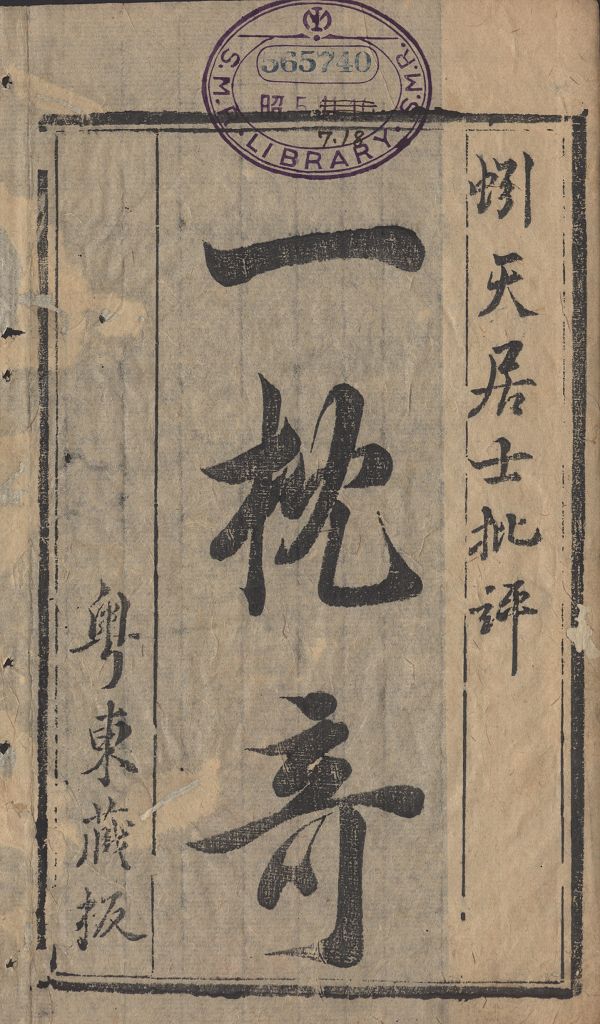 S.M.R. LIBRARY. S.M.R.
565740
昭 5.
7.18
蚓天居士批評
一枕奇
粤東藏板